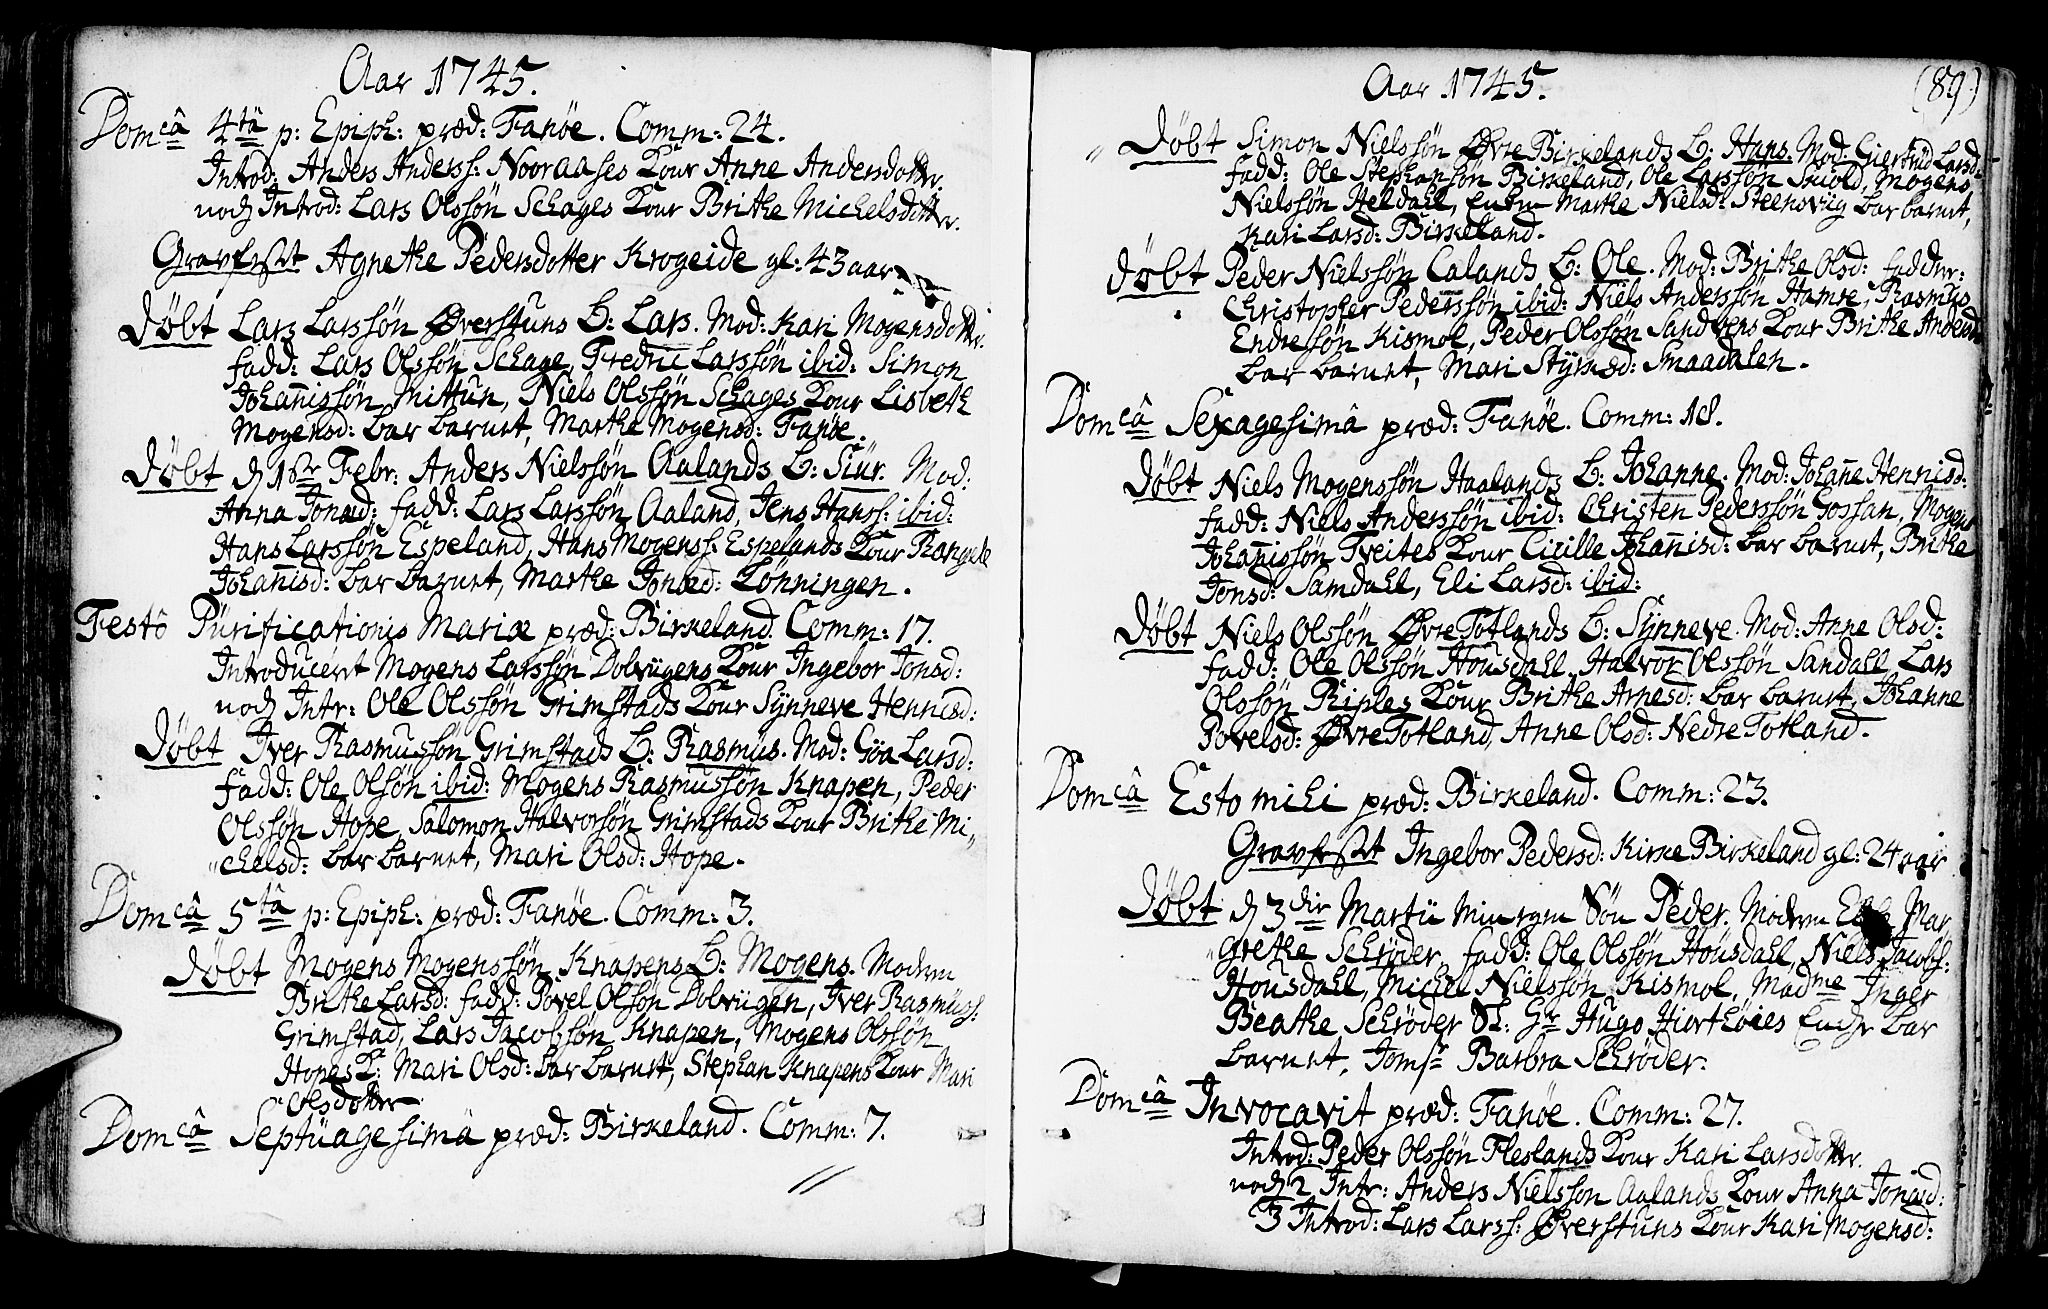 Aar 1745.
Dom câ 4 tâ p: Epiph: præd: Fanöe. Comm: 24.
Introd: Anders Anderss: Nooraases Kone Anne Andersdotter.
nok Introd: Lars Olssön Schages Kone Brithe Michelsdotter.
Gravfæst Agnethe Pedersdotter Krogeide gl: 43 aar
Döbt Lars Larssön Øverstuns B: Lars. Mod: Kari Mogensdotter.
fadd: Lars Olssön Schage, Fredric Larssön ibid: Simon
Johanissön Mittun, Niels Olssön Schages Kone Lisbeth
Mogensd: bar barnet, Marthe Mogensd: Fanöe.
Döbt d 1ste Febr: Anders Nielssön Aalands B: Siur. Mod:
Anna Jonæd: fadd: Lars Larssön Aaland, Jens Hanss: ibid:
Hans Larssön Espeland, Hans Mogenss: Espelands Kone Rangele
Johanisd: bar barnet, Marthe Jonæd: Lönningen.
Festô Purificationis Mariæ præd: Birkeland. Comm: 17.
Introduceret Mogens Larssön Dolvigens Kone Ingebor Jonsd:
nok Intr: Ole Olssön Grimstads Kone Synneve Hennisd:
Döbt Iver Rasmussön Grimstads B: Rasmus. Mod: Göa Larsd:
fadd: Ole Olsön ibid: Mogens Rasmussön Knapen, Peder
Olssön Hope, Salomon Halvorsön Grimstads Kone Brithe Mi,,
,,chelsd: bar barnet, Mari Olsd: Hope.
Dom câ 5 tâ p: Epiph: præd: Fanöe. Comm: 3.
Döbt Mogens Mogenssön Knapens B: Mogens. Moderen
Brithe Larsd: fadd: Povel Olssön Dolvigen, Iver Rasmuss:
Grimstad, Lars Jacobsön Knapen, Mogens Olssön
Hopes K: Mari Olsd: bar barnet, Stephan Knapens Kone Mari
Olsdotter
Dom câ Septuagesima præd: Birkeland. Comm: 7.
Aar 1745. (89)
Döbt Simon Nielssön Øvre Birkelands B: Hans. Mod: Giertrud Larsd:
fadd: Ole Stephansön Birkeland, Ole Larssön Skiold, Mogens
Nielssön Heldahl, Marthe Nielsd: Steensvig bar barnet,
Kari Larsd: Birkeland.
Döbt Peder Nielssön Calands B: Ole. Mod: Brithe Olsd: fadder:
Christopher Pederssön ibid: Niels Anderssön Hamre, Rasmus
Endressön Kismol, Peder Olssön Sandvens Kone Brithe Andersd:
bar barnet, Mari Styrked: Smaadalen.
Dom câ Sexagesimâ præd: Fanöe. Comm: 18.
Döbt Niels Mogenssön Haalands B: Johanne. Mod: Johane Hennisd:
fadd: Niels Anderssön ibid: Christen Pederssön Gossan, Mogens
Johanissön Tveites Kone Cicille Johanisd: bar barnet, Brithe
Jonsd: Samdahl, Eli Larsd: ibid:
Döbt Niels Olssön Øvre Totlands B: Synneve. Mod: Anne Olsd:
fadd: Ole Olssön Housdahl, Halvor Olssön Sandahl, Lars
Olssön Riples Kone Brithe Arnesd: bar barnet, Johanne
Povelsd: Øvre Totland, Anne Olsd: Nedre Totland.
Dom câ Esto mihi præd: Birkeland. Comm: 23.
Gravfæst Ingebor Pedersd: Kirke Birkeland gl: 24 aar
Döbt d 3die Martii min egen Sön Peder. Moderen Mar,,
,,grethe Schröder, fadd: Ole Olssön Housdahl, Niels Jacobs:
Housdahl, Michel Nielssön Kismol, Madme Inger
Beathe Schröder Sl: Hr Hugo Hiorthöies Enche bar
barnet, Jomfr Barbra Schröder.
Dom câ Invocavit præd: Fanöe. Comm: 27.
Introd: Peder Olssön Fleslands Kone Kari Larsdotter.
nok 2 Intr: Anders Nielssön Aalands Kone Anna Jonæd:
3 Introd: Lars Larss: Øverstuns Kone Kari Mogensd: